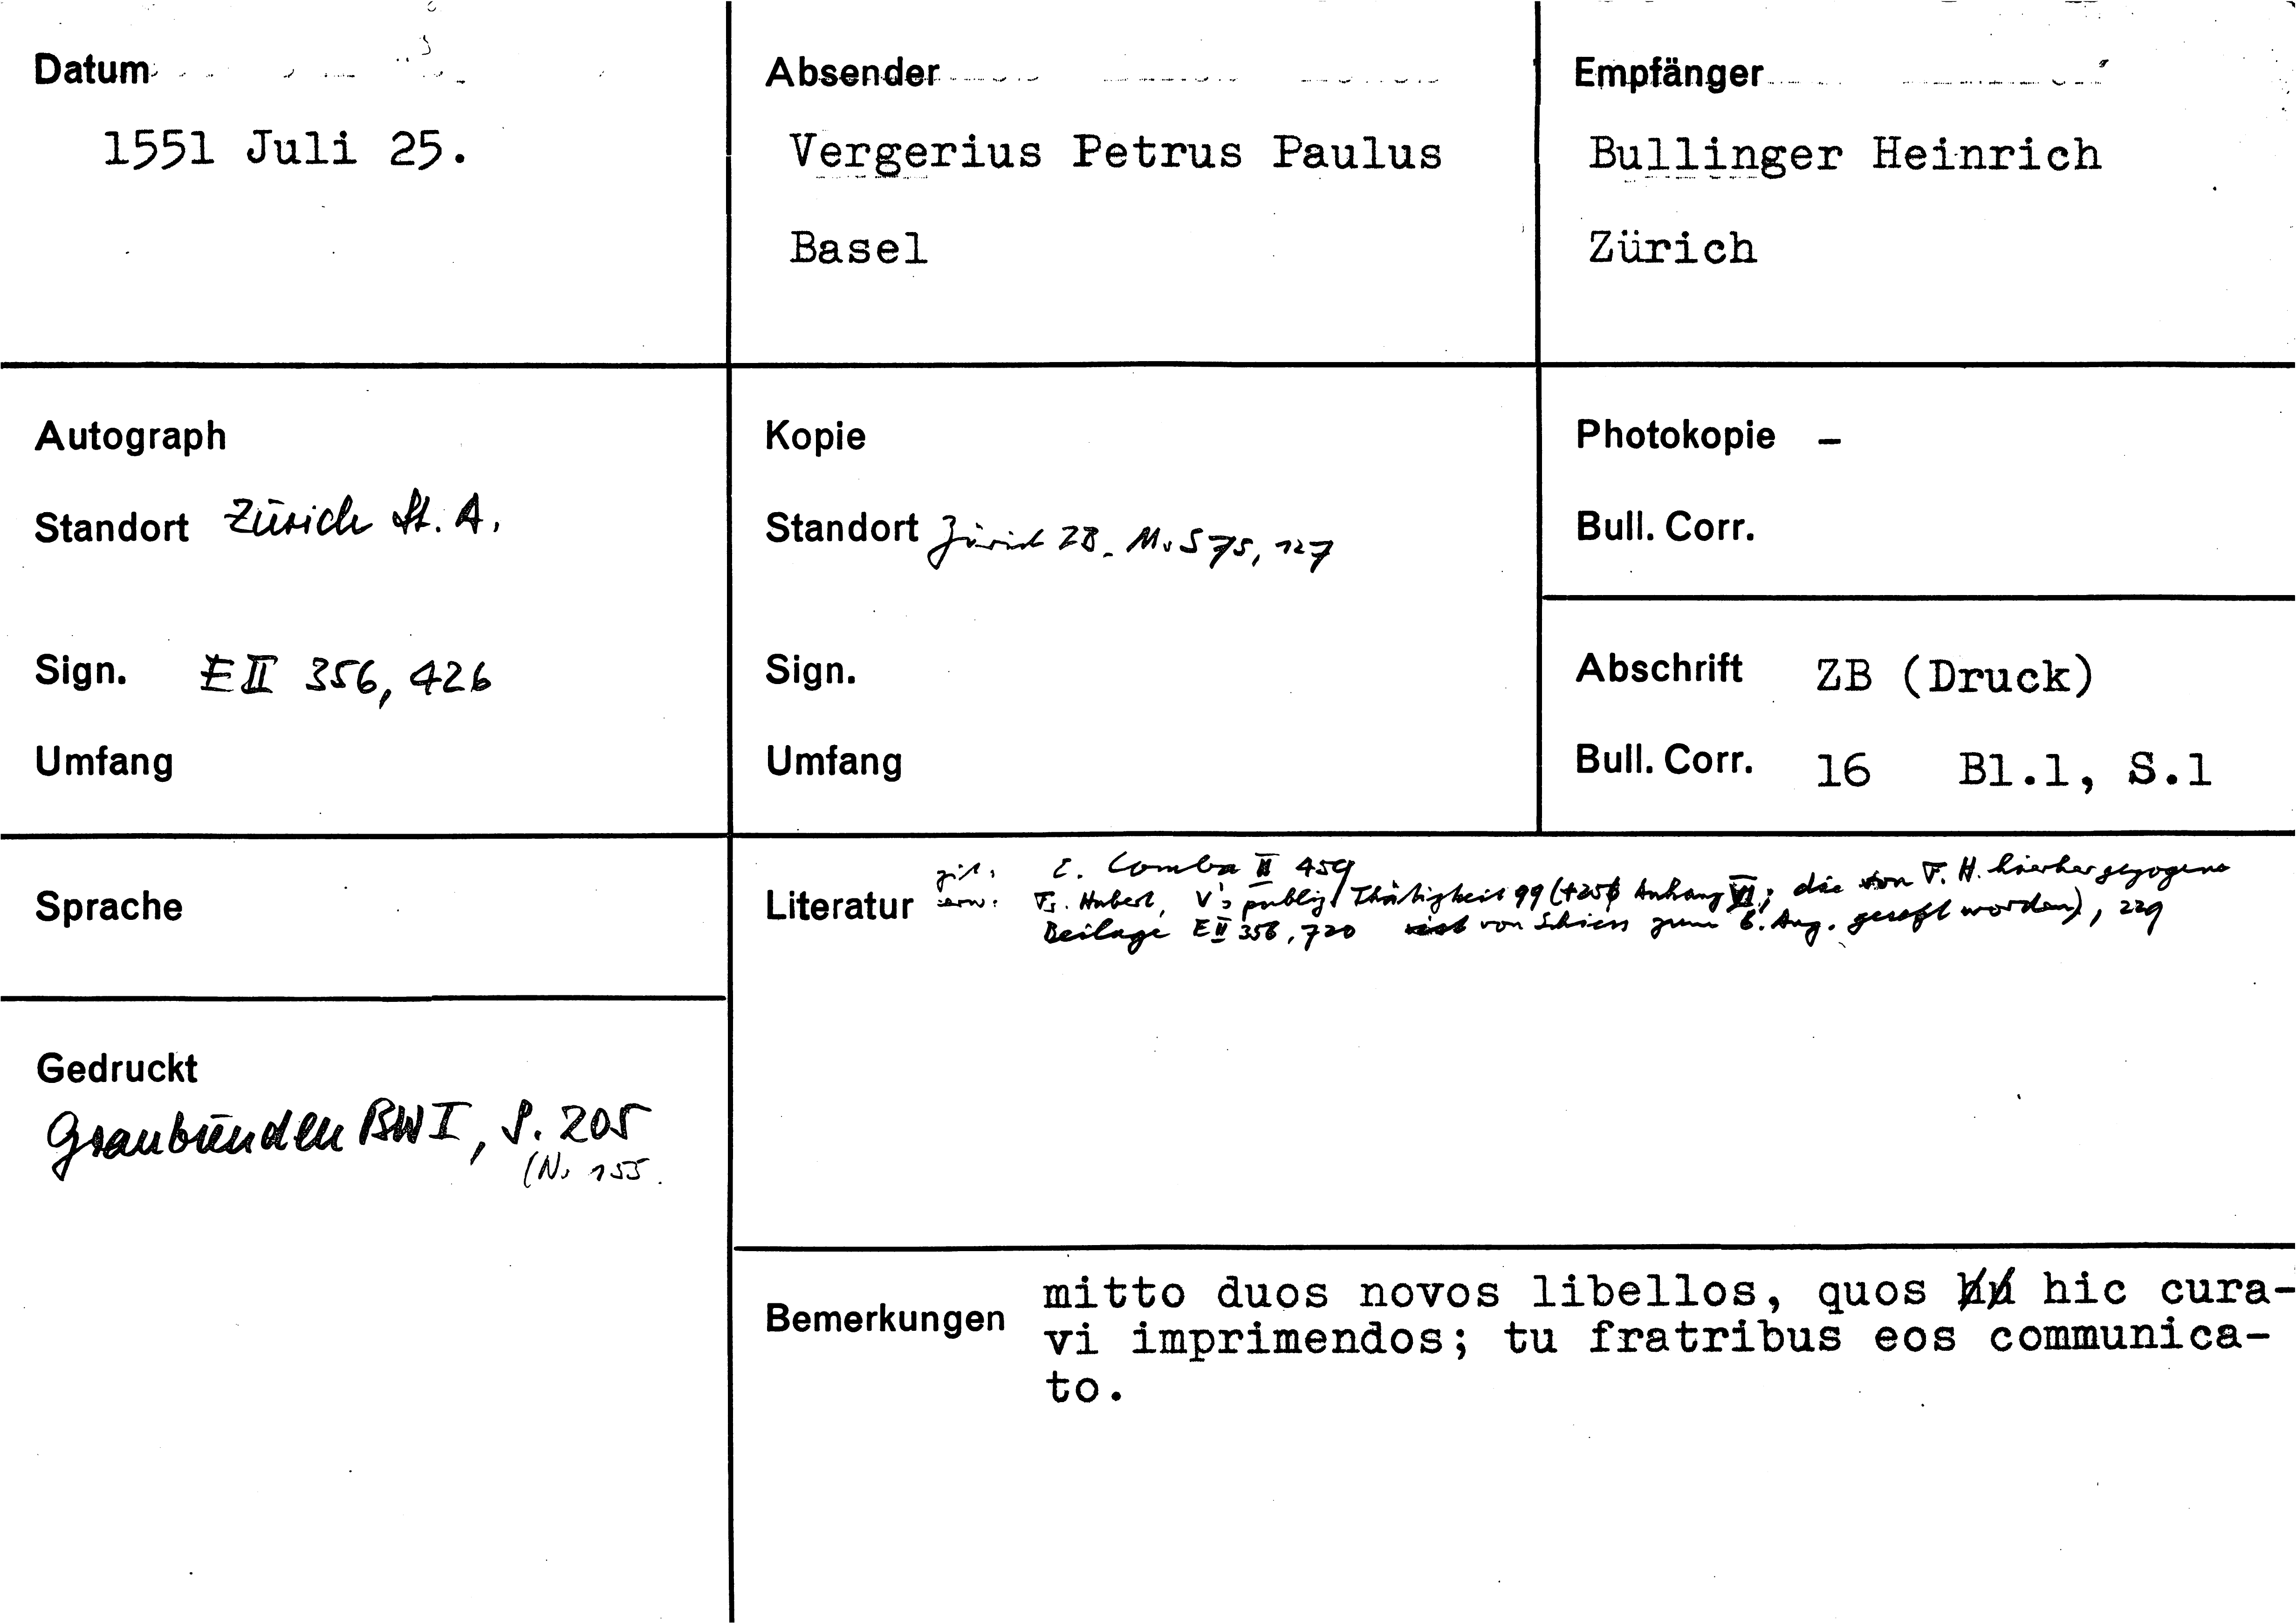 Datum
1551 Juli 25.
Absender
Vergerius Petrus Paulus
Basel
Empfänger
Bullinger Heinrich
Zürich
Autograph
Standort Zürich St. A.
Sign. E II 356, 426
Umfang
Kopie
Standort Zürich ZB. Ms S 75, 127
Sign.
Umfang
Photokopie –
Bull. Corr.
Abschrift ZB (Druck)
Bull. Corr. 16 Bl.1, S.1
Sprache
Gedruckt
Graubünden BW I, S. 205
(No 155.
Literatur
zit. E. Comba II 459
erw. Fr. Hubert, V's publiz. Thätigkeit 99 (+ Anhang VI; die von F. H. hierher gezogene
Beilage E II 356, 720 von Schiess zum 6. Aug. gesetzt worden), 229
Bemerkungen
mitto duos novos libellos, quos hic cura-
vi imprimendos; tu fratribus eos communica-
to.